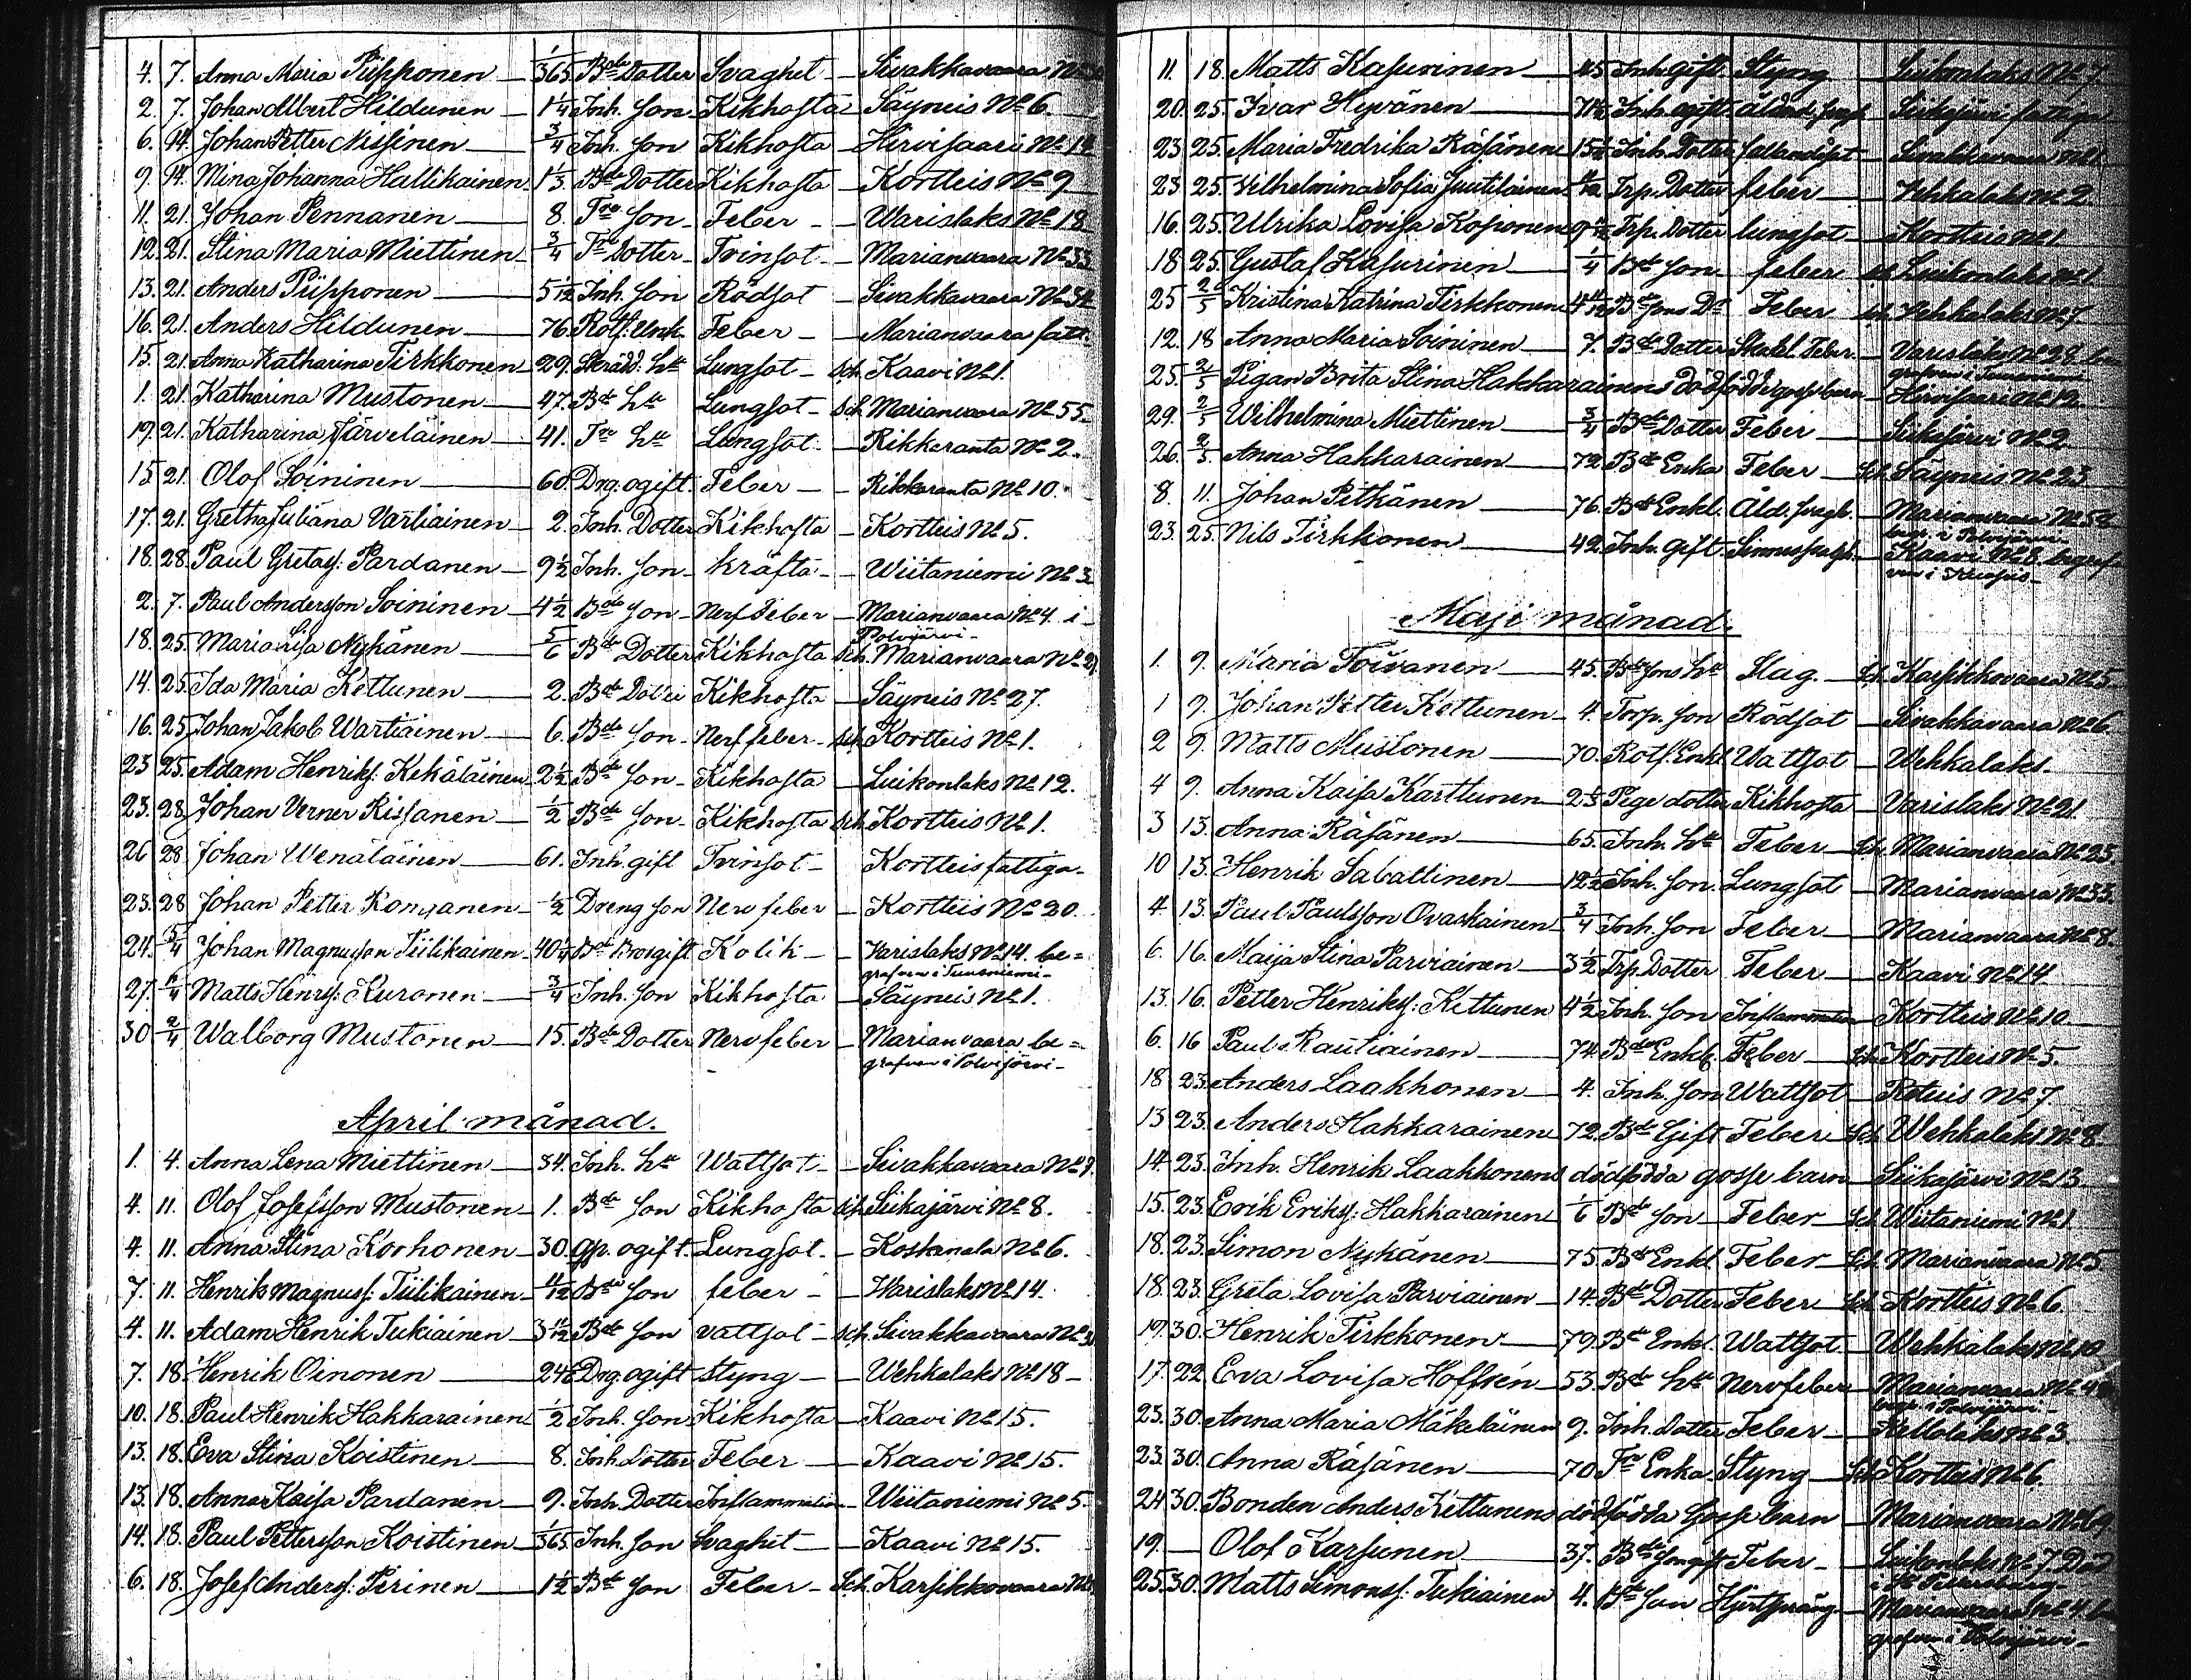 4. 7. Anna Maria Piipponen 1/365 Bde Dotter Svaghet Sivakkavaara
2. 7. Johan Albert Hildunen 1 1/4 Inh. Son Kikhosta Säyneis No 6.
6. 14. Johan Petter Nissinen 3/4 Inh. Son Kikhosta Hirvisaari No 12
9. 14. Mina Johanna Hallikainen 1 1/3 Bde Dotter Kikhosta Kortteis No 9
11. 21. Johan Pennanen 8. Tre Son Feber Warislaks No 18
12. 21. Stina Maria Miettinen 3/4 Tre Dotter Tvinsot Marianvaara No 33
13. 21. Anders Piipponen 5 1/12 Inh. Son Rödsot Sivakkavaara No 34
16. 21. Anders Hildunen 76. Rotf. Enk Feber Marianvaara fatt.
15. 21. Anna Katharina Tirkkonen 29. Skrädd. hu Lungsot Sch. Kaavi No 1.
1. 21. Katharina Mustonen 47. Bde hu Lungsot Sch. Marianvaara No 55.
19. 21. Katharina Järveläinen 41. Tre hu Lungsot Rikkaranta No 2.
15. 21. Olof Soininen 60. Drg. ogift. Feber Rikkaranta No 10.
17. 21. Gretha Juliana Vartiainen 2. Inh. Dotter Kikhosta Kortteis No 5.
18. 28. Paul Gretas: Pardanen 9 1/2 Inh. Son kräfta Wiitaniemi No 3
2. 7. Paul Andersson Soininen 4 1/2 Bde Son Nerf Feber Marianvaara No 4. i
Polvijärvi
18. 25. Maria Lisa Nykänen 5/6 Bde Dotter Kikhosta Sch. Marianvaara No 29.
14. 25. Ida Maria Kettunen 2. Bde Dotter Kikhosta Säyneis No 27.
16. 25. Johan Jakob Wartiainen 6. Bde Son Nerffeber Sch. Kortteis No 1.
23 25. Adam Henriks: Kekäläinen 2 1/2 Bde Son Kikhosta Luikonlaks No 12.
23. 28. Johan Verner Rissanen 1/2 Bde Son Kikhosta Sch. Kortteis No 1.
26 28. Johan Wenäläinen 61. Inh. gift Tvinsot Kortteis fattiga
23. 28 Johan Petter Romanen 1/2 Dreng Son Nervfeber Kortteis No 20.
24. 5/4 Johan Magnusson Tiilikainen 40 1/4 Bde Bror gift Kolik Varislaks No 14. be=
grafven i Tuusniemi
27. Matts Henrs: Kuronen 3/4 Inh. Son Kikhosta Säyneis No 1.
30 2/4 Walborg Mustonen 15. Bde Dotter Nervfeber Marianvaara be=
grafven i Polvijärvi
April månad.
1. 4. Anna Lena Miettinen 34. Inh. hu Wattsot Sivakkavaara No 9.
4. 11. Olof Josefsson Mustonen 1. Bde Son Kikhosta Sch. Siikajärvi No 8.
4. 11. Anna Stina Korhonen 30. Gp. ogift. Lungsot. Koskanala No 6.
7. 11. Henrik Magnuss: Tiilikainen 11/12 Bde Son feber Warislaks No 14.
4. 11. Adam Henrik Tukiainen 3 1/12 Bde Son Vattsot Sch. Sivakkavaara
7. 18. Henrik Oinonen 24 Drg. ogift Styng Wehkalaks No 18
10. 18. Paul Henrik Hakkarainen 1/2 Inh. Son Kikhosta Kaavi No 15.
13. 18. Eva Stina Koistinen 8. Inh Dotter Feber Kaavi No 15.
13. 18. Anna Kaisa Pardanen 9. Inh. Dotter Inflammation Wiitaniemi No 5.
14. 18. Paul Pettersson Koistinen 1/365 Inh. Son Svaghet Kaavi No 15.
6. 18. Josef Anders: Perinen 1 1/2 Bde Son Feber Sch. Karsikkovaara
11. 18. Matts Kasurinen 45 Inh. gift Styng Luikonlaks No 7.
20. 25. Ivar Hyvänen Inh. ogift Siikajärvi fattiga
23 25. Maria Fredrika Räsänen Inh. Dotter Sivakkavaara
23 25. Vilhelmina Sofia Juutilainen 11/12 Trp. Dotter feber Vehkalaks No 2.
16. 25. Ulrika Lovisa Koponen Trp. Dotter lungsot Kortteis No 1.
18 25. Gustaf Kasurinen 1/4 Bde Son feber Luikonlaks No 1.
25 2/5 Kristina Katrina Tirkkonen 4 11/12 Bde Sons Dr Feber Vehkalaks No 7
12. 18 Anna Maria Soininen 7. Bde Dotter Skarl. Feber. Varislaks No 28. be=
grafven i Tuusniemi
25. 2/5 Pigan Brita Stina Hakkarainens dödfödde gosse barn Hirvisaari No 12.
29. 2/5 Wilhelmina Miettinen 3/4 Bde Dotter Feber Siikajärvi No 2.
26. 2/5. Anna Hakkarainen 72. Bde Enka Feber Sch. Säyneis No 23
8. 11. Johan Pitkänen 76. Bde Enkl. Åld. svagh. Marianvaara No 58
begr. i Polvijärvi
23. 25. Nils Tirkkonen 42. Inh. Gift Sinnessvagh. Kaavi No 8. begraf=
ven i Kuopio
Maji månad.
1. 9. Maria Toivanen 45. Bde Sons hu Slag. Sch. Karsikkovaara No 5.
1 9. Johan Petter Kettunen 4. Torp. Son Rödsot Sivakkavaara No 6.
2 9. Matts Mustonen 70. Rotf. Enkl Wattsot Wehkalaks.
4 9. Anna Kaisa Karttunen 2 2/3 Pige dotter Kikhosta Varislaks No 21.
3 13. Anna Räsänen 65. Inh. hu Feber Sch. Marianvaara No 25.
10 13. Henrik Sabattinen 12 1/2 Inh. Son. Lungsot Marianvaara No 33.
4. 13. Paul Paulsson Ovaskainen 3/4 Inh. Son Feber Marianvaara No 8.
6. 16. Maija Stina Parviainen 3 1/2 Trp. Dotter Feber Kaavi No 14
13. 16. Petter Henriks: Kettunen 4 1/2 Inh. Son Inflammation Kortteis No 10.
6. 16 Paul Rautiainen 74. Bde Enkl. Feber Sch. Kortteis No 5.
18 23. Anders Laakkonen 4. Inh. Son Wattsot No 7.
13 23. Anders Hakkarainen 72. Bde Gift Feber Sch. Wehkalaks No 8.
14. 23. Inh. Henrik Laakkonens dödfödda gosse barn Siikajärvi No 13.
15. 23. Erik Eriks: Hakkarainen 1/6 Bde Son Feber Sch. Wiitaniemi No 1
18. 23. Simon Nykänen 75. Bde Enkl Feber Sch. Marianvaara No 5
18. 23. Greta Lovisa Parviainen 14. Bde Dotter Feber Sch. Kortteis No 6.
19. 30. Henrik Tirkkonen 79. Bde Enkl. Wattsot Wehkalaks No 10
17. 22. Eva Lovisa Hoffrén 53. Bde hu Nervfeber Marianvaara
begr. i Polvijärvi
23. 30. Anna Maria Mäkeläinen 9. Inh. Dotter Feber Kellolaks No 3.
23. 30. Anna Räsänen 70. Tre Enka Styng Sch. Kortteis No 6.
24. 30. Bonden Anders Kettunens dödfödda Gosse barn Marianvaara
19. Olof Karsunen 37. Bde Son gift Feber Luikonlaks No 7 Död
i St Petersburg
25. 30. Matts Simonss: Tukiainen 4. Bde Son Hjertsprång Marianvaara No 4. be
grafven i Polvijärvi